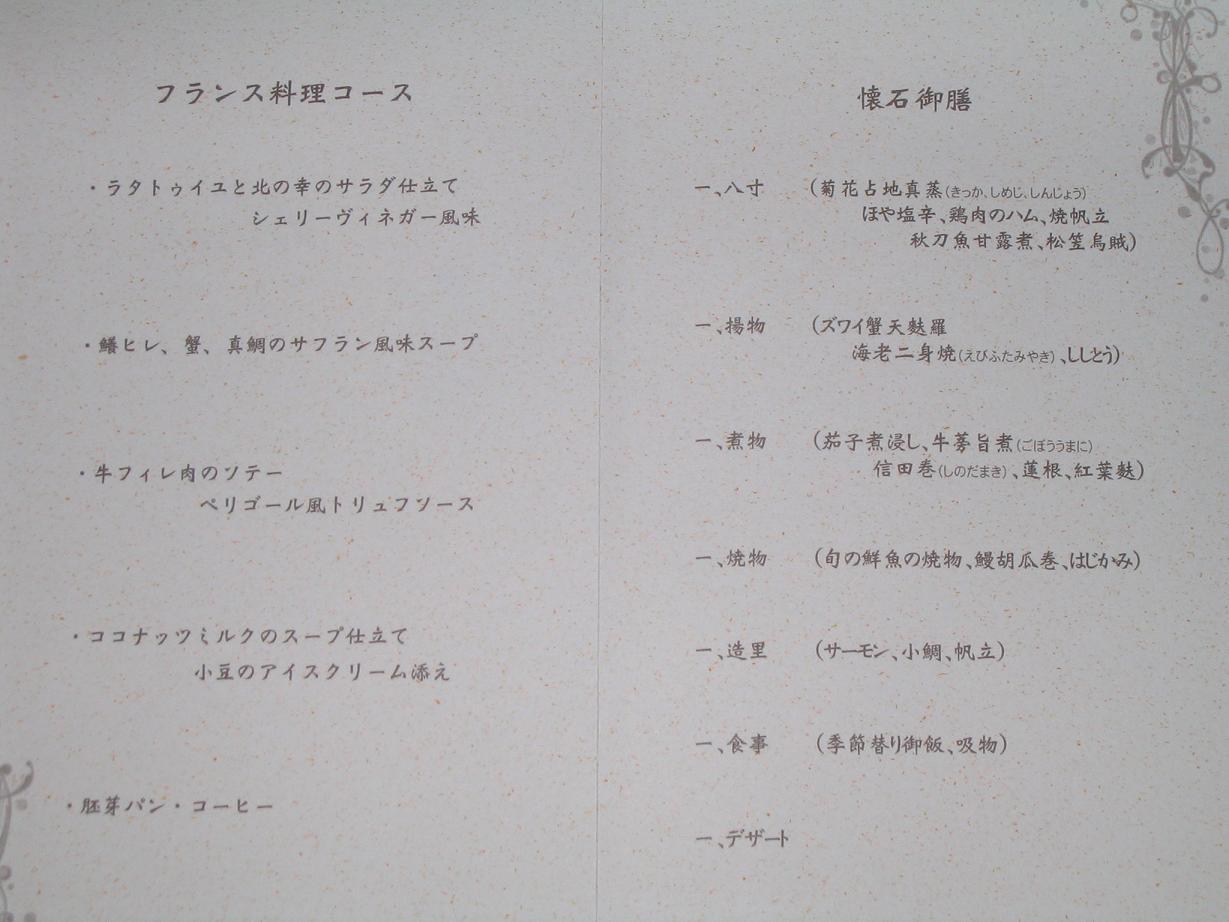 フランス料理コース
・ラタトゥイユと北の幸のサラダ仕立て
シェリーヴィネガー風味
・鱶ヒレ、蟹、真鯛のサフラン風味スープ
・牛フィレ肉のソテー
ペリゴール風トリュフソース
・ココナッツミルクのスープ仕立て
小豆のアイスクリーム添え
・胚芽パン・コーヒー
懐石御膳
一、八寸 (菊花占地真蒸(きっか、しめじ、しんじょう)
ほや塩辛、鶏肉のハム、焼帆立
秋刀魚甘露煮、松笠烏賊)
一、揚物 (ズワイ蟹天麩羅
海老二身焼(えびふたみやき)、ししとう)
一、煮物 (茄子煮浸し、牛蒡旨煮(ごぼううまに)
信田巻(しのだまき)、蓮根、紅葉麩)
一、焼物 (旬の鮮魚の焼物、鰻胡瓜巻、はじかみ)
一、造里 (サーモン、小鯛、帆立)
一、食事 (季節替り御飯、吸物)
一、デザート